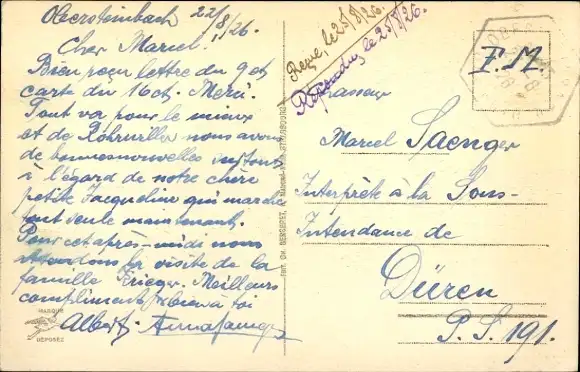 Obersteinbach 22/8/26.
Cher Marcel!
Bien reçu lettre du 9 et
carte du 16 ct. Merci.
Tout va pour le mieux
et de Rohrwiller nous avons
de bonnes nouvelles surtout
à l'égard de notre chère
petite Jacqueline qui marche
tout seule maintenant.
Pour cet après-midi nous
attendons la visite de la
famille Krieger. Meilleurs
compliments, bien à toi
Albert. Anna Saenger
MARQUE
DÉPOSÉE
Reçue, le 25/8/26.
Répondu, le 25/8/26.
F. M.
Chasseur
Marcel Saenger
Interprète à la Sous-
Intendance de
Düren
P. S. 191.